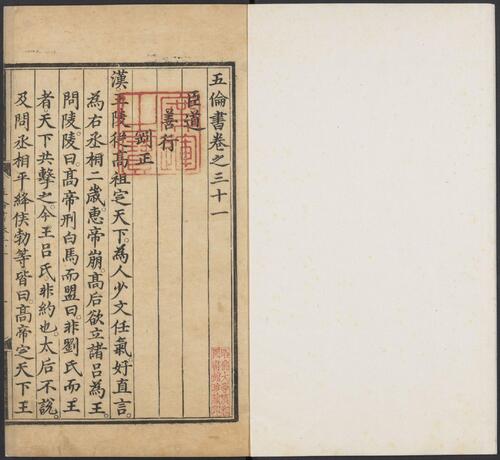 五倫書卷之三十一
臣道
善行
剛正
漢王陵從高祖定天下。為人少文任氣。好直言。
為右丞相二歲。惠帝崩。高后欲立諸呂為王。
問陵。陵曰。高帝刑白馬而盟曰。非劉氏而王
者。天下共擊之。今王呂氏非約也。太后不說。
及問丞相平絳侯勃等。皆曰。高帝定天下王